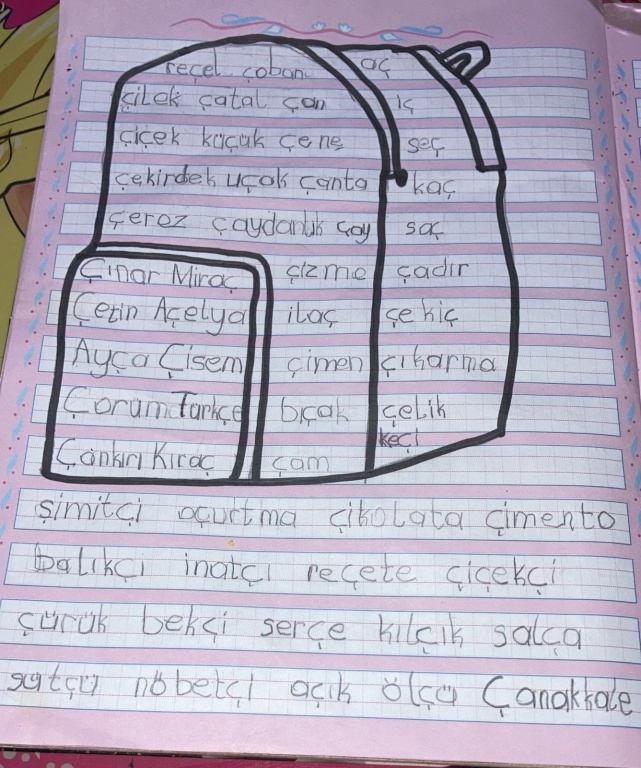 reçel çoban aç
çilek çatal çan iç
çiçek küçük çene seç
çekirdek uçak çanta kaç
çerez çaydanlık çay saç
Çınar Miraç çizme çadır
Çetin Açelya ilaç çekiç
Ayça Çisem çimen çıkarma
Çorum Türkçe bıçak çelik
keçi
Çankırı Kıraç çam
şimitçi uçurtma çikolata çimento
balıkçı inatçı reçete çiçekçi
çürük bekçi serçe kılçık salça
sütçü nöbetçi açık ölçü Çanakkale